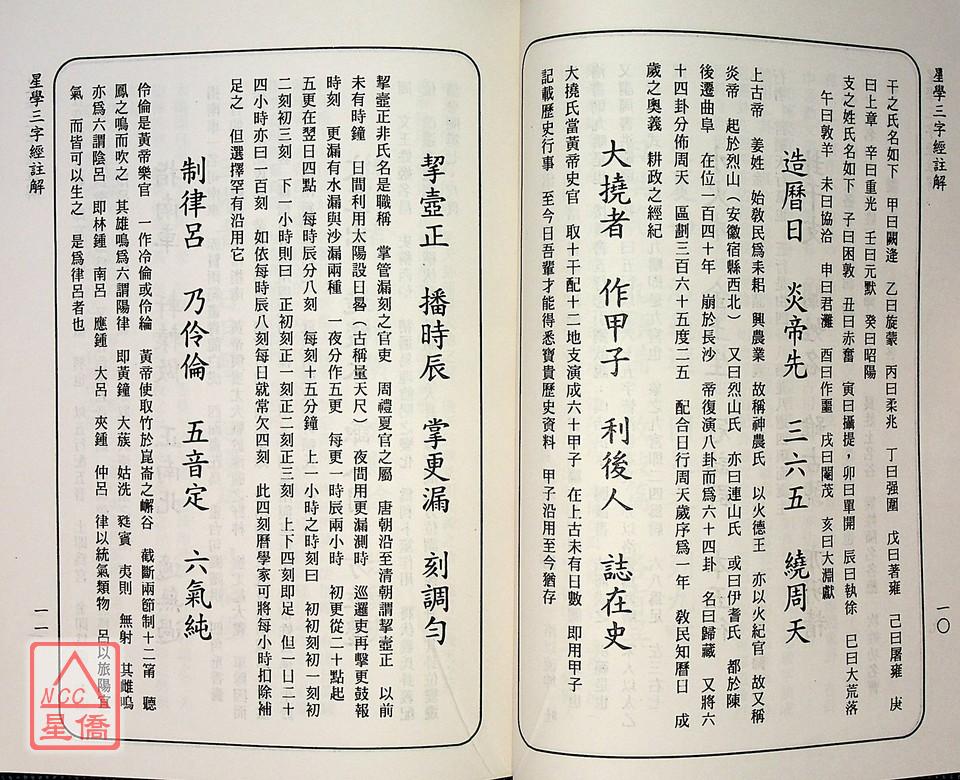 星學三字經註解
一〇
干之氏名如下　甲曰閼逢　乙曰旃蒙　丙曰柔兆　丁曰强圉　戊曰著雍　己曰屠雍　庚
曰上章　辛曰重光　壬曰元默　癸曰昭陽
支之姓氏名如下　子曰困敦　丑曰赤奮　寅曰攝提，卯曰單開　辰曰執徐　巳曰大荒落
午曰敦羊　未曰協洽　申曰君灘　酉曰作噩　戌曰閹茂　亥曰大淵獻
造曆日　炎帝先　三六五　繞周天
上古帝　姜姓　始敎民為耒耜　興農業　故稱神農氏　以火德王　亦以火紀官　故又稱
炎帝　起於烈山（安徽宿縣西北）　又曰烈山氏　亦曰連山氏　或曰伊耆氏　都於陳
後遷曲阜　在位一百四十年　崩於長沙　帝復演八卦而為六十四卦　名曰歸藏　又將六
十四卦分佈周天　區劃三百六十五度二五　配合日行周天歲序為一年　敎民知曆日　成
歲之奧義　耕政之經紀
大撓者　作甲子　利後人　誌在史
大撓氏當黃帝史官　取十干配十二地支演成六十甲子　在上古未有日數　即用甲子
記載歷史行事　至今日吾輩才能得悉寶貴歷史資料　甲子沿用至今猶存
挈壺正　播時辰　掌更漏　刻調勻
挈壺正非氏名是職稱　掌管漏刻之官吏　周禮夏官之屬　唐朝沿至清朝謂挈壺正　以前
未有時鐘　日間利用太陽設日晷（古稱量天尺）　夜間用更漏測時　巡邏吏再擊更鼓報
時刻　更漏有水漏與沙漏兩種　一夜分作五更　每更一時辰兩小時　初更從二十點起
五更在翌日四點　每時辰分八刻　每刻十五分鐘　上一小時之時刻曰　初初刻初一刻初
二刻初三刻　下一小時則曰　正初刻正一刻正二刻正三刻　上下四刻即足　但一日二十
四小時亦曰一百刻　如依每時辰八刻每日就常欠四刻　此四刻曆學家可將每小時扣除補
足之　但選擇罕有沿用它
制律呂　乃伶倫　五音定　六氣純
伶倫是黃帝樂官　一作冷倫或伶綸　黃帝使取竹於崑崙之嶰谷　截斷兩節制十二筩　聽
鳳之鳴而吹之　其雄鳴為六謂陽律　即黃鐘　大蔟　姑洗　蕤賓　夷則　無射　其雌鳴
亦為六謂陰呂　即林鍾　南呂　應鍾　大呂　夾鍾　仲呂　律以統氣類物　呂以旅陽宣
氣　而皆可以生之　是為律呂者也
星學三字經註解
一一
NCC
星僑